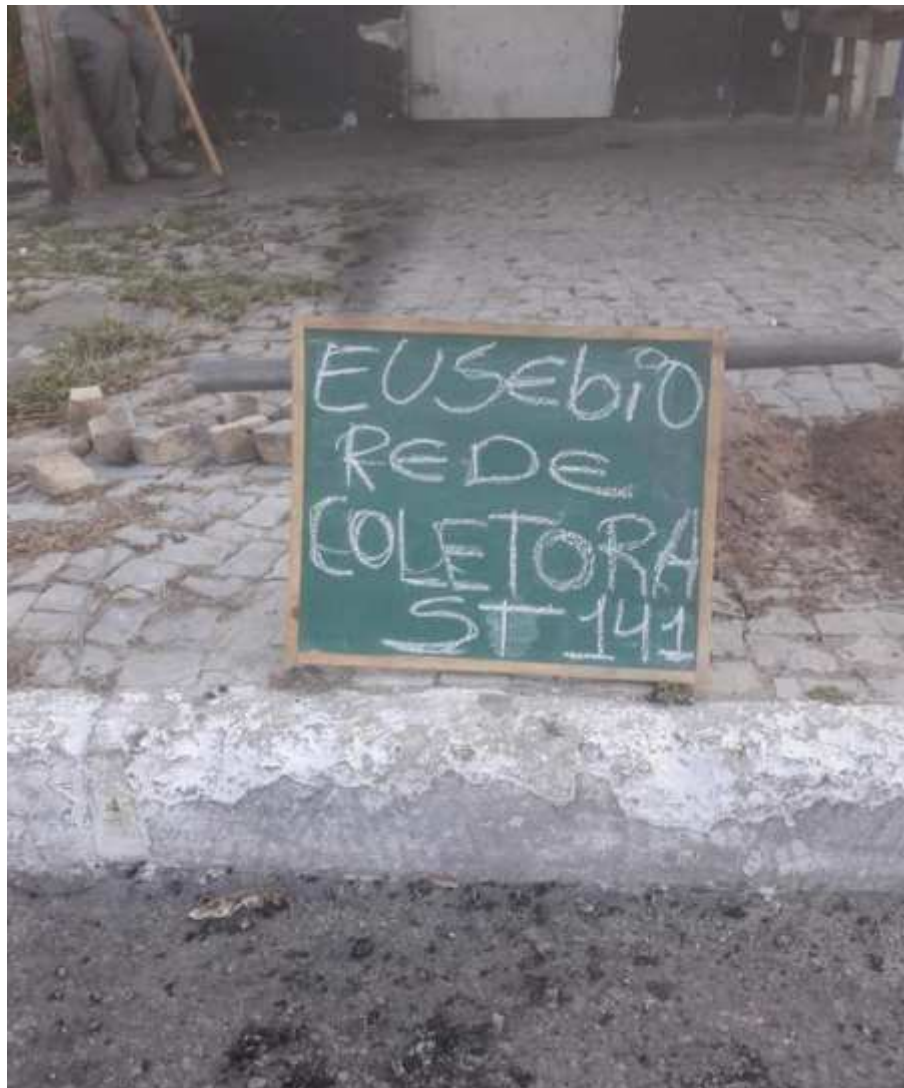 EUSEbiO
REDE
COLETORA
ST 141